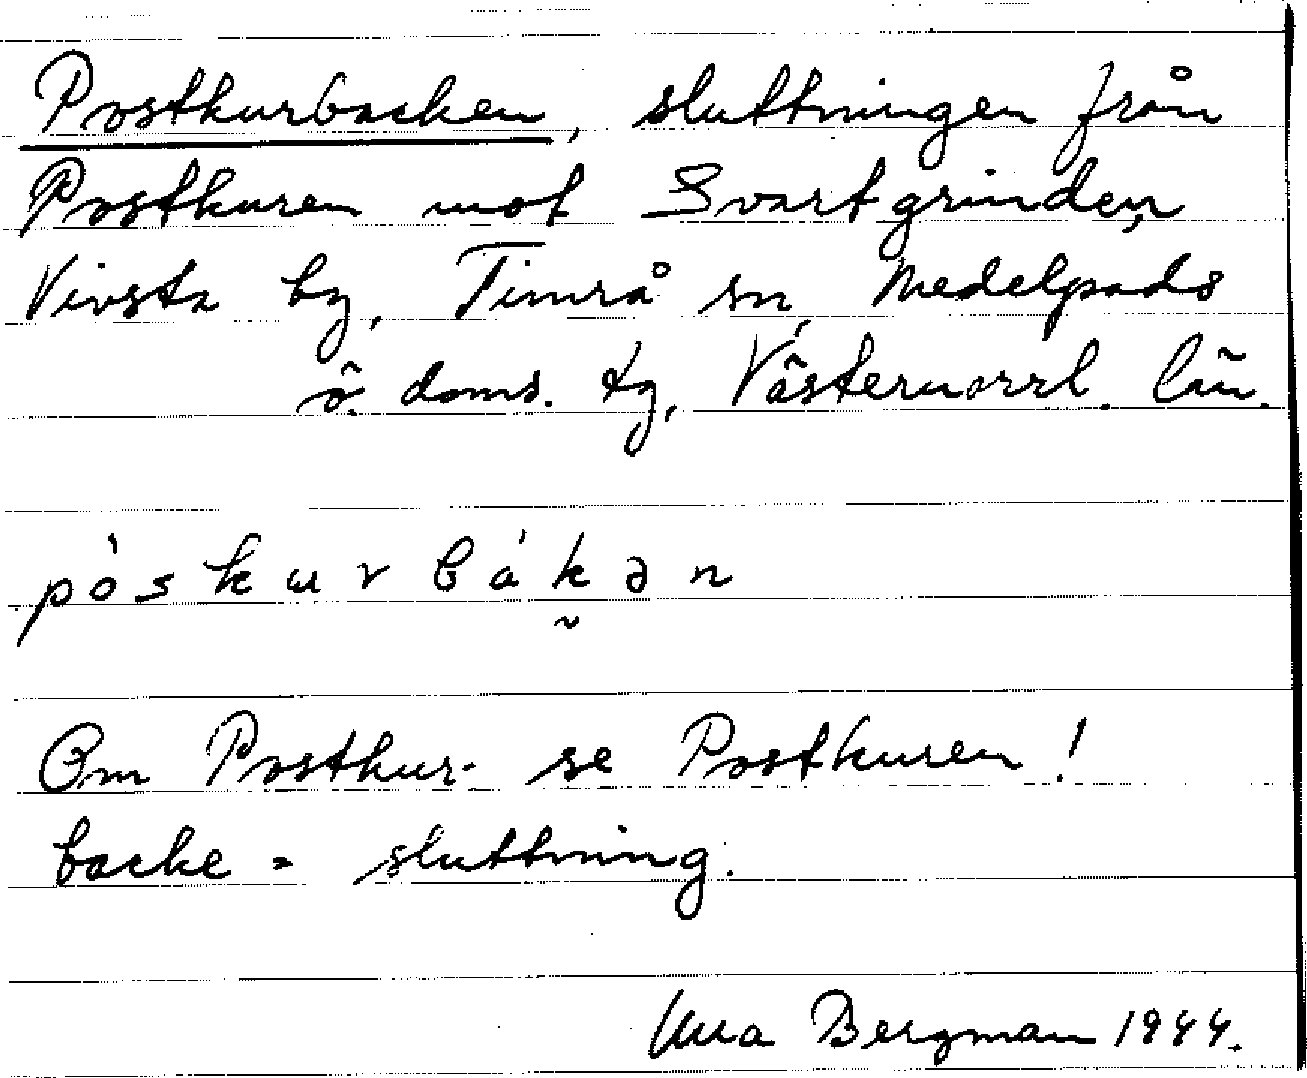 Postkurbacken, sluttningen från
Postkuren mot Svartgrinden,
Vivsta by, Timrå sn, Medelpads
ö. doms. tg, Västernorrl. län.
pòskurbákən
Om Postkur- se Postkuren!
backe = sluttning.
Bergman 1944.